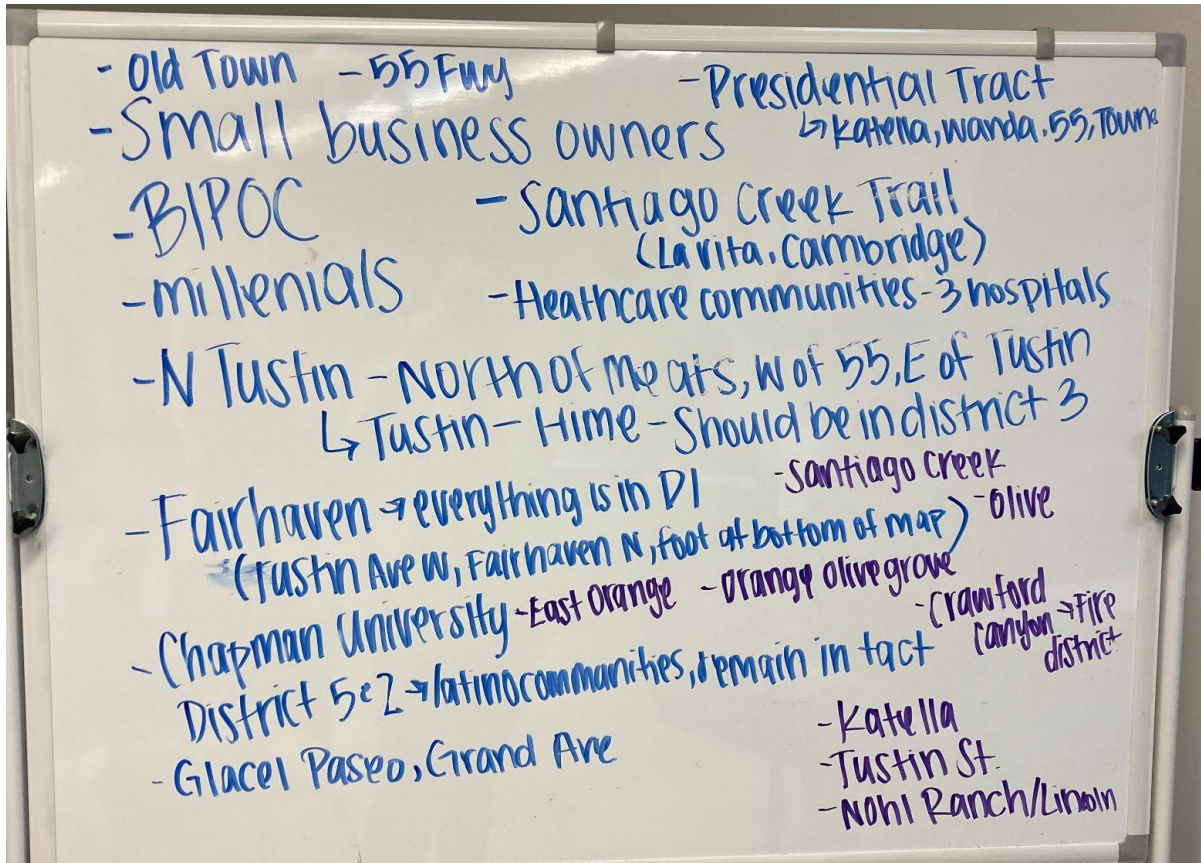 - Old Town - 55 Fwy
- Presidential Tract
↳ Katella, Wanda, 55, Towne
- Small business owners
- BIPOC
- Santiago Creek Trail
(La Vita, Cambridge)
- millenials
- Heathcare communities - 3 hospitals
- N Tustin - North of Meats, W of 55, E of Tustin
↳ Tustin - Hime - Should be in district 3
- Santiago Creek
- Fairhaven → everything is in D1
- Olive
(Tustin Ave W, Fairhaven N, foot at bottom of map)
- Chapman University
- East Orange
- Orange Olive grove
- Crawford
canyon → Fire
district
District 5 & 2 → latino communities, remain in tact
- Glacel Paseo, Grand Ave
- Katella
- Tustin St.
- Nohl Ranch/Lincoln